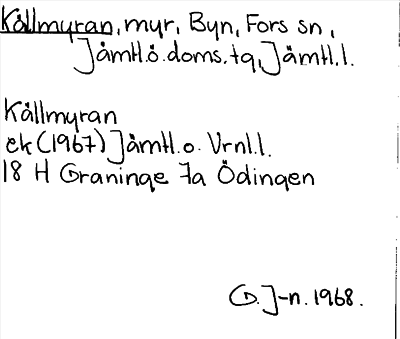 Kållmyran, myr, Byn, Fors sn,
Jämtl.ö.doms.tg, Jämtl.l.
Kållmyran
ek (1967) Jämtl.o. Vrnl.l.
18 H Graninge 7a Ödingen
G.J-n. 1968.